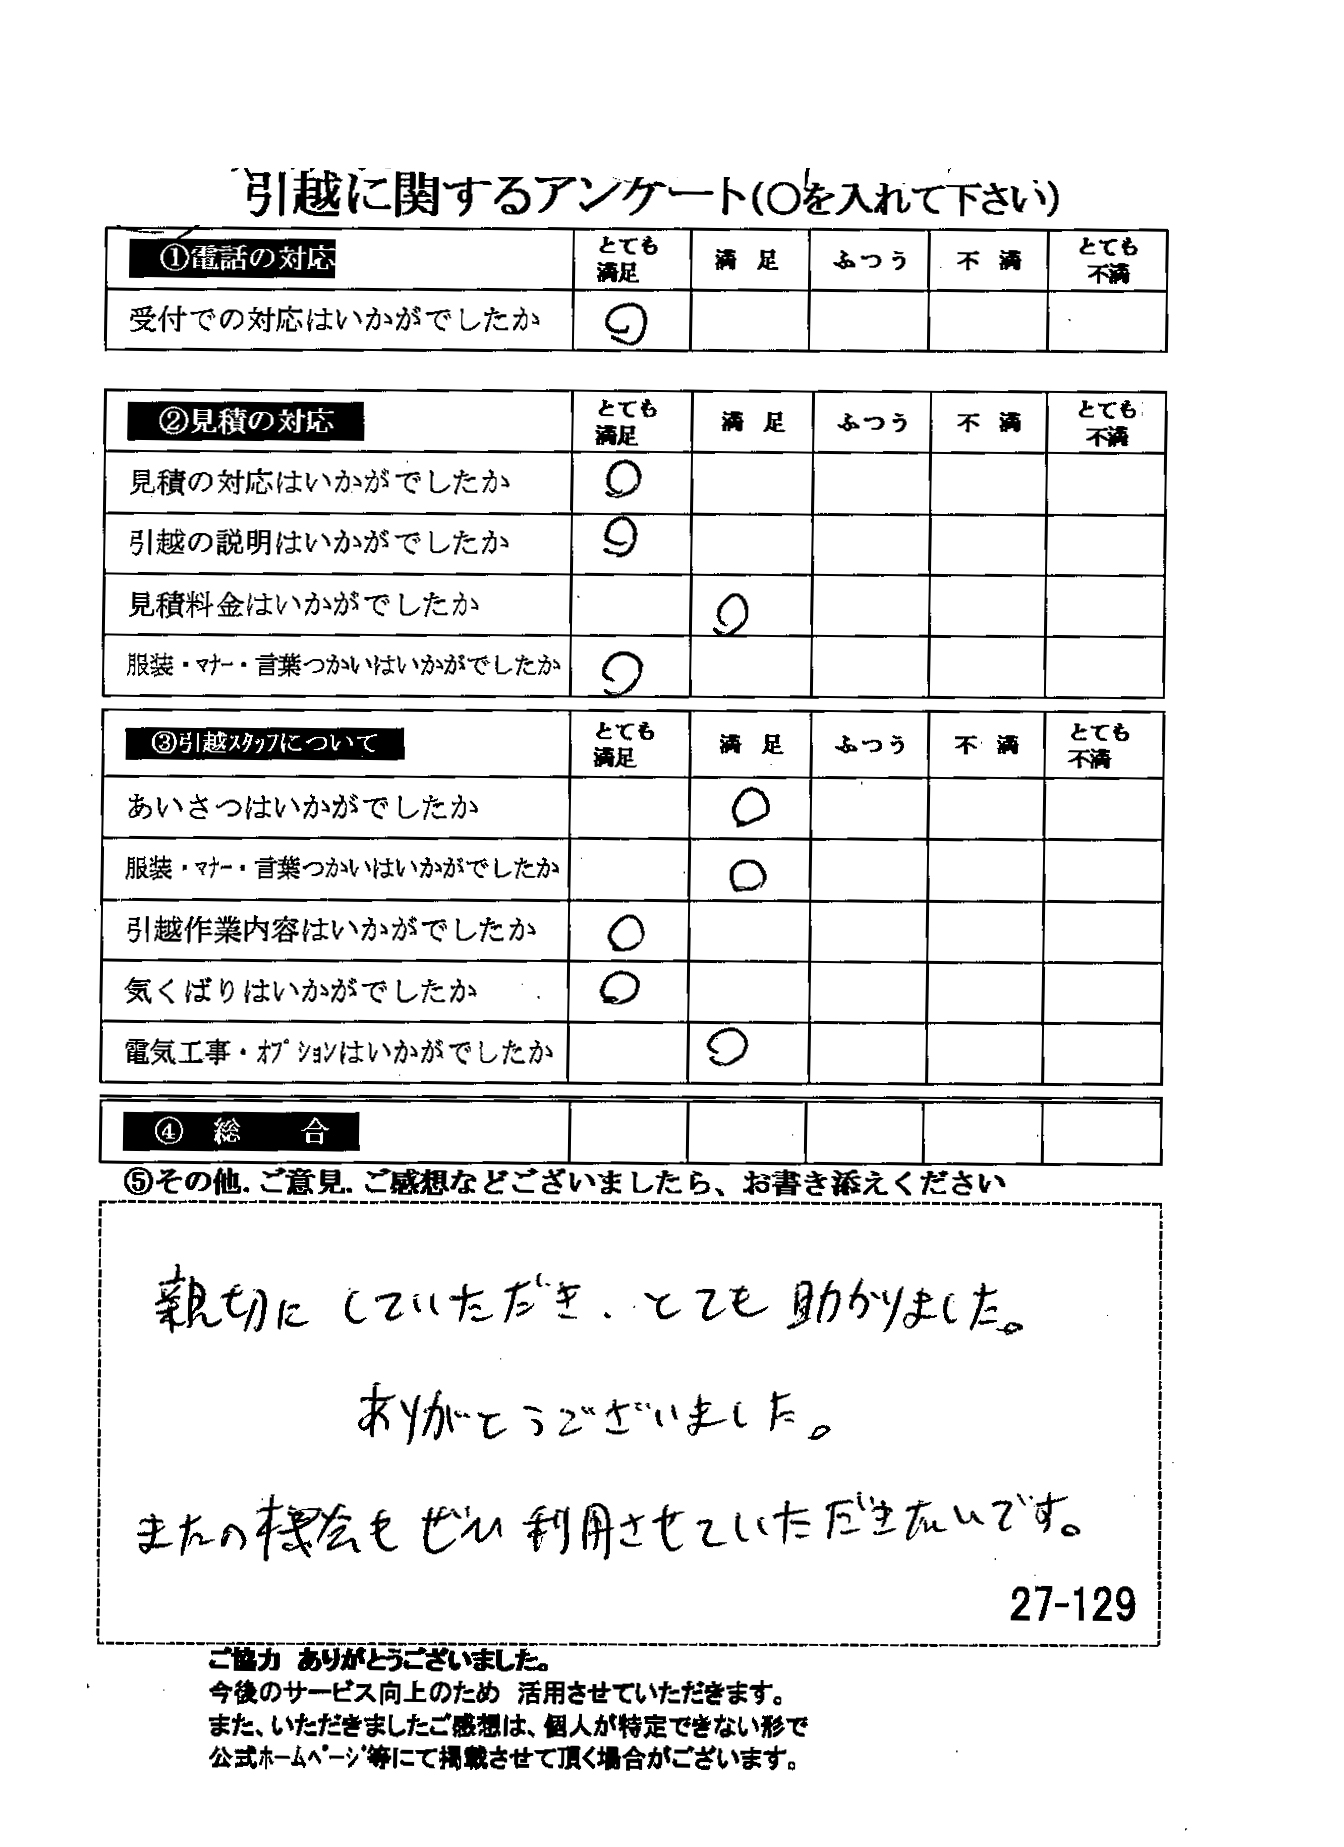 引越に関するアンケート(○を入れて下さい)
①電話の対応 とても満足 満足 ふつう 不満 とても不満
受付での対応はいかがでしたか ○
②見積の対応 とても満足 満足 ふつう 不満 とても不満
見積の対応はいかがでしたか ○
引越の説明はいかがでしたか ○
見積料金はいかがでしたか ○
服装・マナー・言葉つかいはいかがでしたか ○
③引越スタッフについて とても満足 満足 ふつう 不満 とても不満
あいさつはいかがでしたか ○
服装・マナー・言葉つかいはいかがでしたか ○
引越作業内容はいかがでしたか ○
気くばりはいかがでしたか ○
電気工事・オプションはいかがでしたか ○
④ 総 合
⑤その他.ご意見.ご感想などございましたら、お書き添えください
親切にしていただき、とても助かりました。
ありがとうございました。
またの機会もぜひ利用させていただきたいです。
27-129
ご協力 ありがとうございました。
今後のサービス向上のため 活用させていただきます。
また、いただきましたご感想は、個人が特定できない形で
公式ホームページ等にて掲載させて頂く場合がございます。